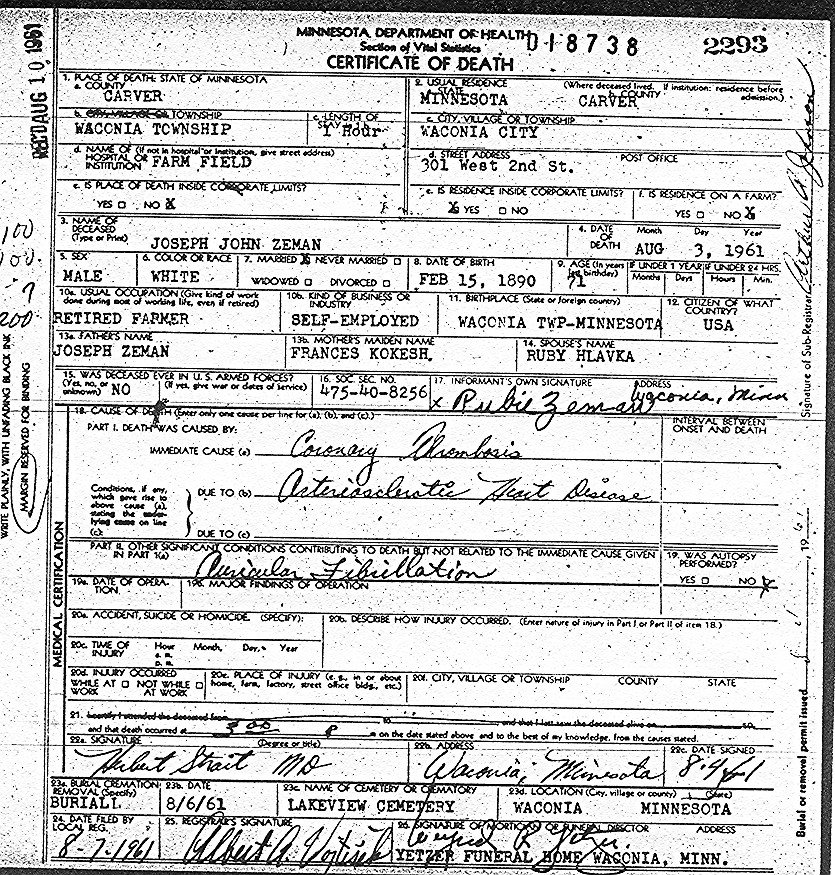 MINNESOTA DEPARTMENT OF HEALTH 018738 2293
Section of Vital Statistics
CERTIFICATE OF DEATH
REC'D AUG 10 1961
1. PLACE OF DEATH: STATE OF MINNESOTA
a. COUNTY
CARVER
2. USUAL RESIDENCE (Where deceased lived. If institution: residence before admission.)
STATE b. COUNTY
MINNESOTA CARVER
b. CITY, VILLAGE OR TOWNSHIP c. LENGTH OF STAY
WACONIA TOWNSHIP 1 Hour
c. CITY, VILLAGE OR TOWNSHIP
WACONIA CITY
d. NAME OF (If not in hospital or institution, give street address)
HOSPITAL OR INSTITUTION FARM FIELD
d. STREET ADDRESS POST OFFICE
301 West 2nd St.
e. IS PLACE OF DEATH INSIDE CORPORATE LIMITS?
YES □ NO X
e. IS RESIDENCE INSIDE CORPORATE LIMITS? f. IS RESIDENCE ON A FARM?
X YES □ NO YES □ NO X
3. NAME OF DECEASED (Type or Print)
JOSEPH JOHN ZEMAN
4. DATE OF DEATH Month Day Year
AUG 3, 1961
5. SEX 6. COLOR OR RACE 7. MARRIED X NEVER MARRIED □ 8. DATE OF BIRTH 9. AGE (In years last birthday) IF UNDER 1 YEAR IF UNDER 24 HRS.
MALE WHITE WIDOWED □ DIVORCED □ FEB 15, 1890 71 Months Days Hours Min.
10a. USUAL OCCUPATION (Give kind of work done during most of working life, even if retired) 10b. KIND OF BUSINESS OR INDUSTRY 11. BIRTHPLACE (State or foreign country) 12. CITIZEN OF WHAT COUNTRY?
RETIRED FARMER SELF-EMPLOYED WACONIA TWP-MINNESOTA USA
13a. FATHER'S NAME 13b. MOTHER'S MAIDEN NAME 14. SPOUSE'S NAME
JOSEPH ZEMAN FRANCES KOKESH RUBY HLAVKA
15. WAS DECEASED EVER IN U.S. ARMED FORCES? 16. SOC. SEC. NO. 17. INFORMANT'S OWN SIGNATURE ADDRESS
(Yes, no, or unknown) NO (If yes, give war or dates of service) 475-40-8256 x Rubie Zeman Waconia, Minn
18. CAUSE OF DEATH (Enter only one cause per line for (a), (b), and (c).) INTERVAL BETWEEN ONSET AND DEATH
PART I. DEATH WAS CAUSED BY:
IMMEDIATE CAUSE (a) Coronary Thrombosis
Conditions, if any, which gave rise to above cause (a), stating the underlying cause on line (c):
DUE TO (b) Arteriosclerotic Heart Disease
DUE TO (c)
PART II. OTHER SIGNIFICANT CONDITIONS CONTRIBUTING TO DEATH BUT NOT RELATED TO THE IMMEDIATE CAUSE GIVEN IN PART I(a) 19. WAS AUTOPSY PERFORMED?
Auricular Fibrillation YES □ NO X
19a. DATE OF OPERATION 19b. MAJOR FINDINGS OF OPERATION
20a. ACCIDENT, SUICIDE OR HOMICIDE. (SPECIFY): 20b. DESCRIBE HOW INJURY OCCURRED. (Enter nature of injury in Part I or Part II of item 18.)
20c. TIME OF INJURY Hour Month, Day, Year
a. m.
p. m.
20d. INJURY OCCURRED 20e. PLACE OF INJURY (e.g., in or about home, farm, factory, street office bldg., etc.) 20f. CITY, VILLAGE OR TOWNSHIP COUNTY STATE
WHILE AT WORK □ NOT WHILE AT WORK □
21. I hereby I attended the deceased from to and that I last saw the deceased alive on 19
and that death occurred at 3:00 P m on the date stated above and to the best of my knowledge, from the causes stated.
22a. SIGNATURE (Degree or title) 22b. ADDRESS 22c. DATE SIGNED
Hubert Strait MD Waconia, Minnesota 8-4-61
23a. BURIAL CREMATION REMOVAL (Specify) 23b. DATE 23c. NAME OF CEMETERY OR CREMATORY 23d. LOCATION (City, village or county) (State)
BURIALL 8/6/61 LAKEVIEW CEMETERY WACONIA MINNESOTA
24. DATE FILED BY LOCAL REG. 25. REGISTRAR'S SIGNATURE 26. SIGNATURE OF MORTICIAN OR FUNERAL DIRECTOR ADDRESS
8-7-1961 Albert A. Vojtisek
YETZER FUNERAL HOME WACONIA, MINN.
MEDICAL CERTIFICATION
WRITE PLAINLY, WITH UNFADING BLACK INK
MARGIN RESERVED FOR BINDING
100
7
200
Signature of Sub-Registrar
Burial or removal permit issued